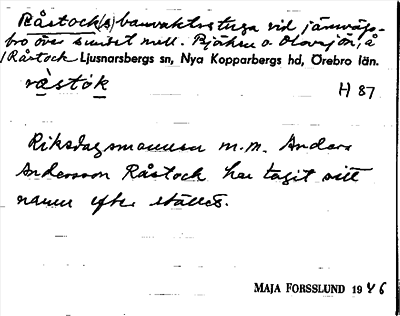 Råstock(s) banvaktsstuga vid järnvägs-
bro över sundet mell. Björken o. Olovsjön, å
/Råstock Ljusnarsbergs sn, Nya Kopparbergs hd, Örebro län.
rāstòk
H 87
Riksdagsmannen m.m. Anders
Andersson Råstock har tagit sitt
namn efter stället.
MAJA FORSSLUND 1946